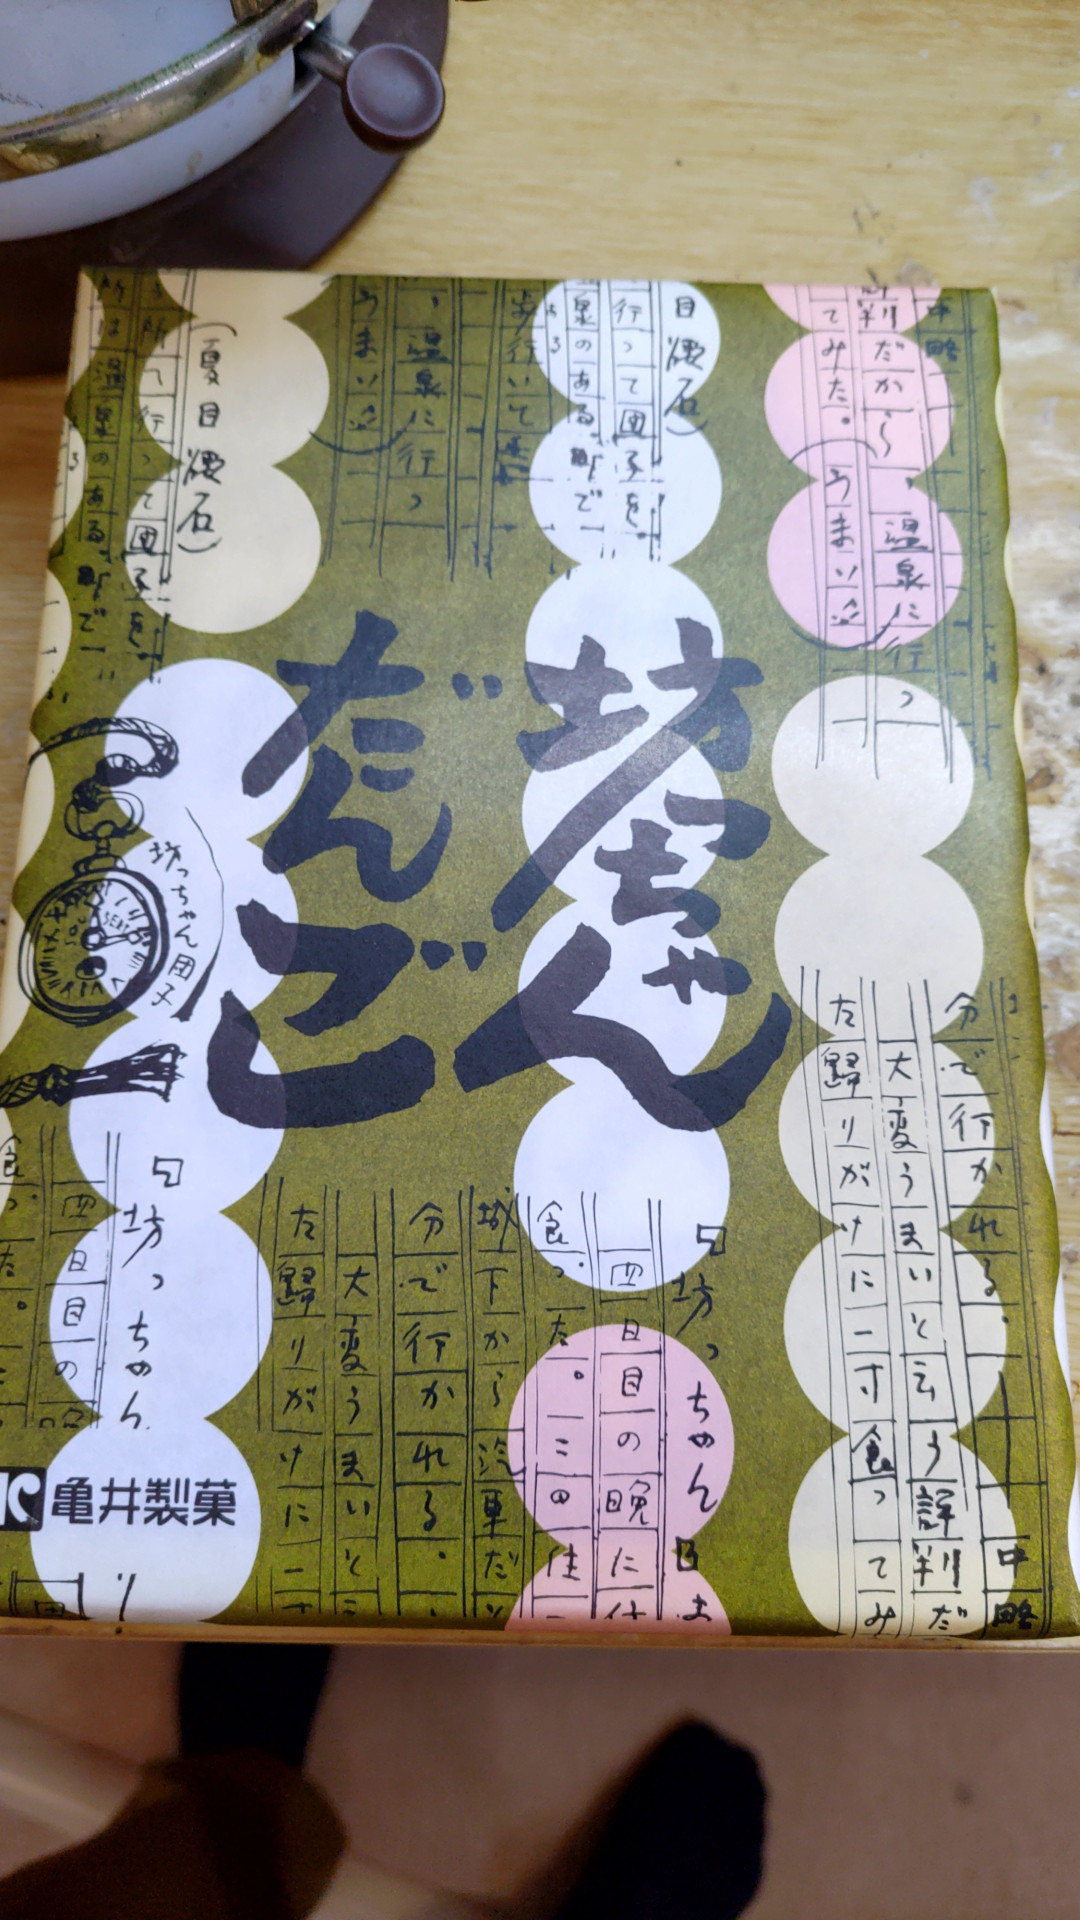 坊っちゃん
だんご
中略
判だから、温泉に行っ
てみた。(うまい
目漱石)
行って団子を
泉のある町で
歩行いて
、温泉に行っ
うまい
(夏目漱石)
所へ行って団子を
所は温泉のある町で
坊っちゃん団子
分で行かれる。
中略
大変うまいと云う評判だ
た帰りがけに一寸食ってみ
『坊っちゃん』よ
四日目の晩に住
食った。この住
城下から汽車だと
分で行かれる。
大変うまいと云
た帰りがけに一寸
『坊っちゃん
四日目の晩
食った。
亀井製菓